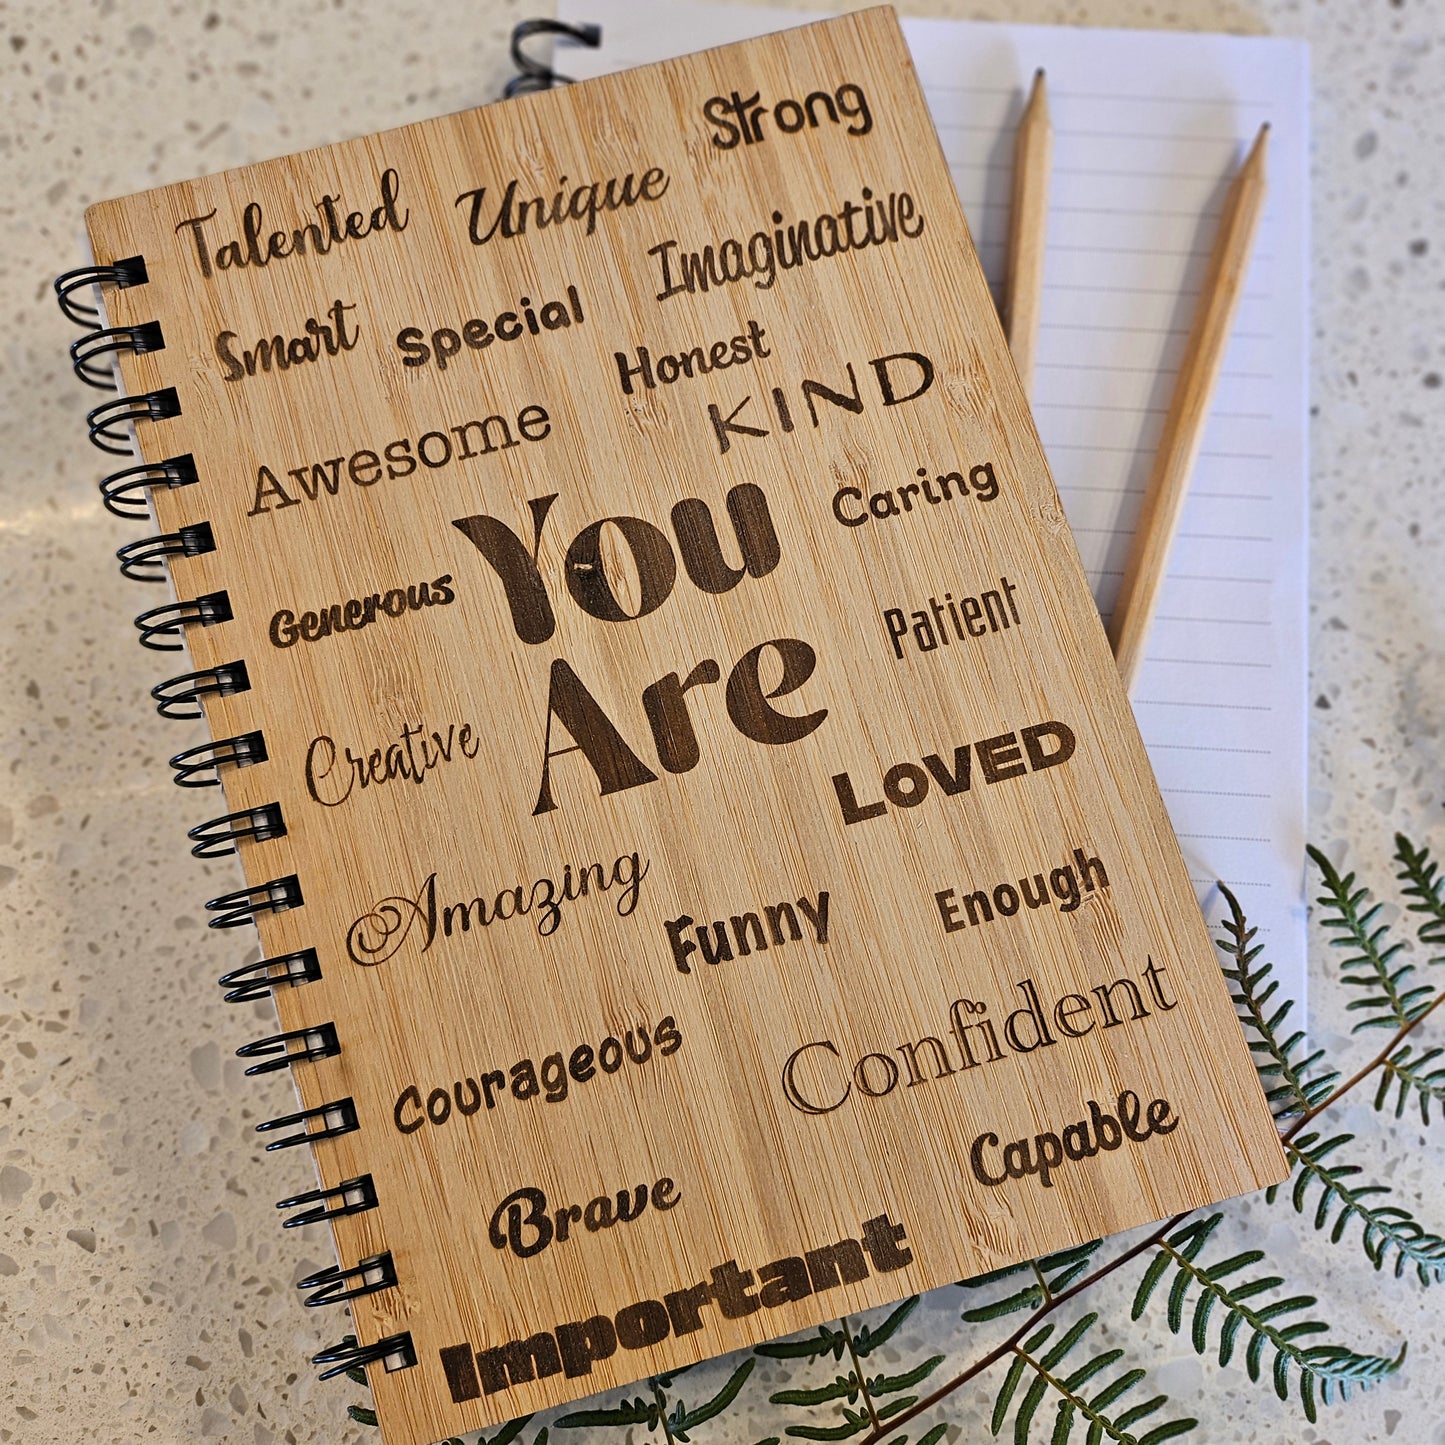 Strong
Talented Unique
Imaginative
Smart Special
Honest
KIND
Awesome
Caring
You
Generous
Patient
Are
Creative
LOVED
Amazing
Funny
Enough
Confident
Courageous
Capable
Brave
Important